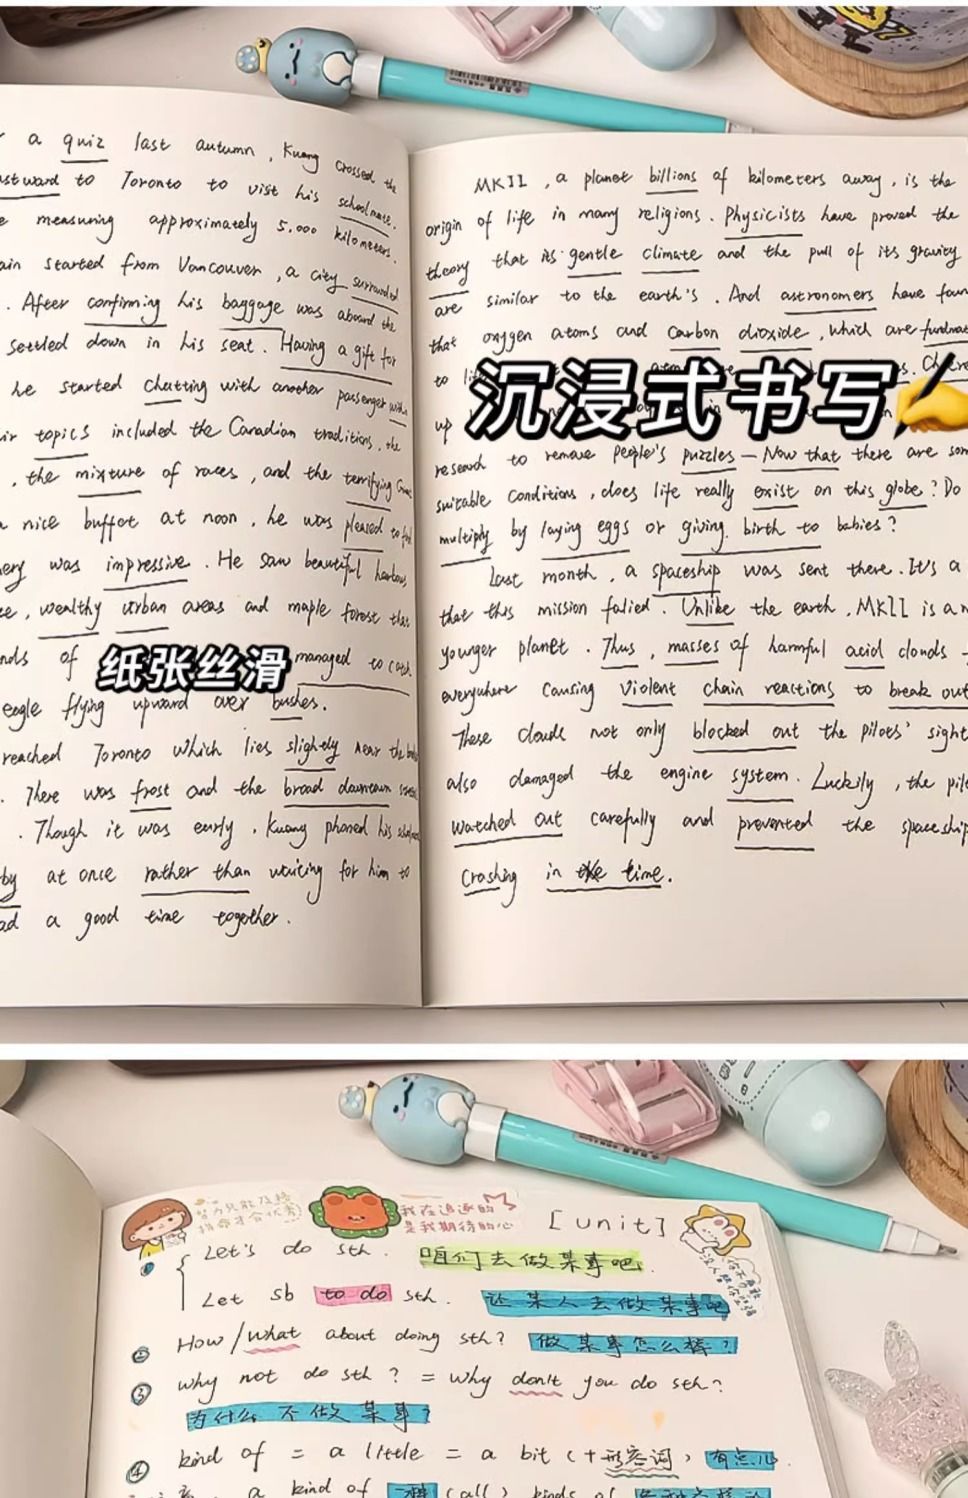 a quiz last autumn, Kuang crossed the
stward to Toronto to visit his schoolmate.
e measuring approximately 5,000 kilometers.
ain started from Vancouver, a city surrounded
. After confirming his baggage was aboard the
settled down in his seat. Having a gift for
he started chatting with another passenger within
ir topics included the Canadian traditions, the
, the mixture of races, and the terrifying
nice buffet at noon, he was pleased to
ery was impressive. He saw beautiful harbou
ce, wealthy urban areas and maple forest tha
nds of
纸张丝滑
managed to catch
eagle flying upward over bushes.
reached Toronto which lies slightly near the
. There was frost and the broad downtown
. Though it was early, Kuang phoned his
by at once rather than waiting for him to
ad a good time together.
MKII, a planet billions of kilometers away, is the
origin of life in many religions. Physicists have proved the
theory that its gentle climate and the pull of its gravity
are similar to the earth's. And astronomers have foun
that oxygen atoms and carbon dioxide, which are fundmat
to
沉浸式书写✍
up
research to remove people's puzzles — Now that there are som
suitable conditions, does life really exist on this globe? Do
multiply by laying eggs or giving birth to babies?
Last month, a spaceship was sent there. It's a
that this mission falied. Unlike the earth, MKII is an
younger planet. Thus, masses of harmful acid clouds
everywhere causing violent chain reactions to break out
These clouds not only blocked out the pilots' sight
also damaged the engine system. Luckily, the pil
watched out carefully and prevented the spaceship
crashing in the time.
努力只能及格
拼命才会优秀
我在追逐的
是我期待的心
[unit]
Let's do sth. 咱们去做某事吧.
Let sb to do sth. 让某人去做某事吧
② How/what about doing sth? 做某事怎么样?
③ why not do sth? = why don't you do sth?
为什么不做某事?
④ kind of = a little = a bit (+形容词) 有点儿
a kind of 一种 (all) kinds of